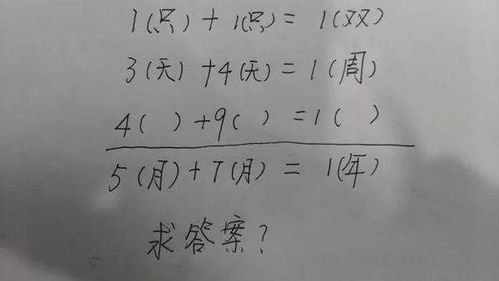 1(只)+1(只)=1(双)
3(天)+4(天)=1(周)
4( )+9( )=1( )
5(月)+7(月)=1(年)
求答案?